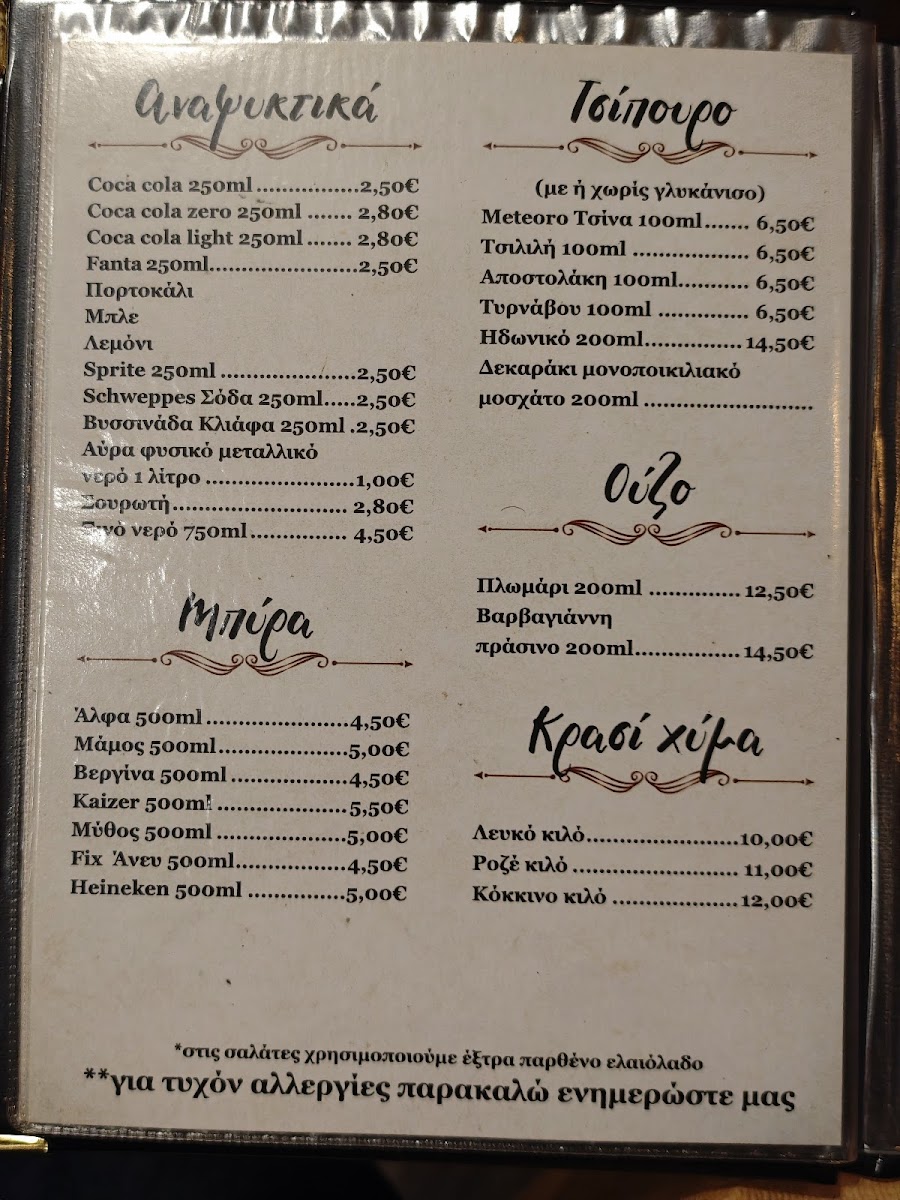 Αναψυκτικά
Coca cola 250ml................2,50€
Coca cola zero 250ml ....... 2,80€
Coca cola light 250ml....... 2,80€
Fanta 250ml.......................2,50€
Πορτοκάλι
Μπλε
Λεμόνι
Sprite 250ml .....................2,50€
Schweppes Σόδα 250ml.....2,50€
Βυσσινάδα Κλιάφα 250ml .2,50€
Αύρα φυσικό μεταλλικό
νερό 1 λίτρο .......................1,00€
Σουρωτή........................... 2,80€
νερό 750ml............... 4,50€
Μπύρα
Άλφα 500ml ......................4,50€
Μάμος 500ml....................5,00€
Βεργίνα 500ml ..................4,50€
Kaizer 500ml ....................5,50€
Μύθος 500ml ....................5,00€
Fix Άνευ 500ml.................4,50€
Heineken 500ml ...............5,00€
Τσίπουρο
(με ή χωρίς γλυκάνισο)
Meteoro Τσίνα 100ml....... 6,50€
Τσιλιλή 100ml .................. 6,50€
Αποστολάκη 100ml........... 6,50€
Τυρνάβου 100ml .............. 6,50€
Ηδωνικό 200ml...............14,50€
Δεκαράκι μονοποικιλιακό
μοσχάτο 200ml ..........................
Ούζο
Πλωμάρι 200ml ..............12,50€
Βαρβαγιάννη
πράσινο 200ml................14,50€
Κρασί χύμα
Λευκό κιλό.......................10,00€
Ροζέ κιλό ......................... 11,00€
Κόκκινο κιλό ...................12,00€
*στις σαλάτες χρησιμοποιούμε έξτρα παρθένο ελαιόλαδο
**για τυχόν αλλεργίες παρακαλώ ενημερώστε μας